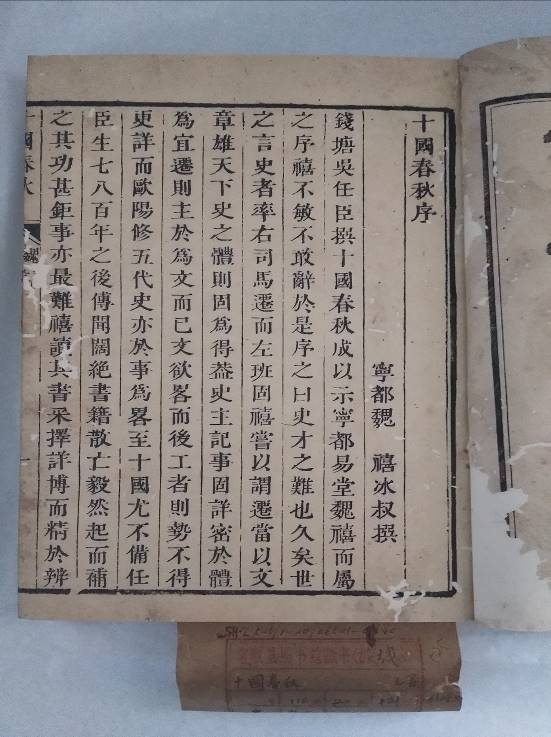 十國春秋序
寧都魏 禧冰叔撰
錢塘吳任臣撰十國春秋成以示寧都易堂魏禧而屬
之序禧不敏不敢辭於是序之曰史才之難也久矣世
之言史者率右司馬遷而左班固禧嘗以謂遷當以文
章雄天下史之體則固爲得葢史主記事固詳密於體
爲宜遷則主於爲文而已文欲畧而後工者則勢不得
更詳而歐陽修五代史亦於事爲畧至十國尤不備任
臣生七八百年之後傳聞闊絶書籍散亡毅然起而補
之其功甚鉅事亦最難禧讀其書采擇詳博而精於辨
十國春秋
魏序
一
十國春秋